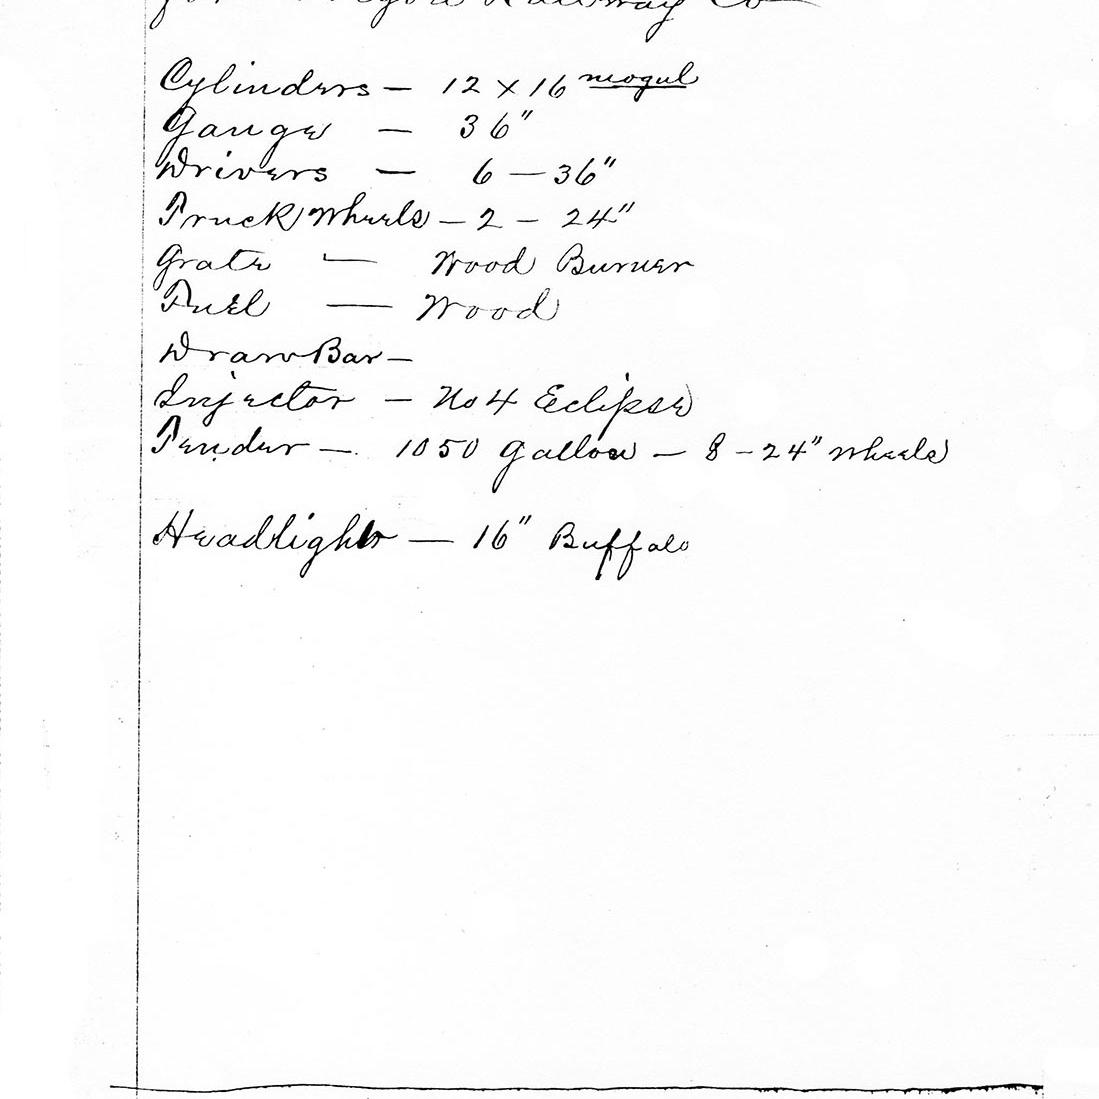 for Railway Co
Cylinders — 12 x 16 mogul
Gauge — 36"
Drivers — 6 — 36"
Truck Wheels — 2 — 24"
Grate — Wood Burner
Fuel — Wood
Draw Bar —
Injector — No 4 Eclipse
Tender — 1050 Gallon — 8 — 24" Wheels
Headlight — 16" Buffalo